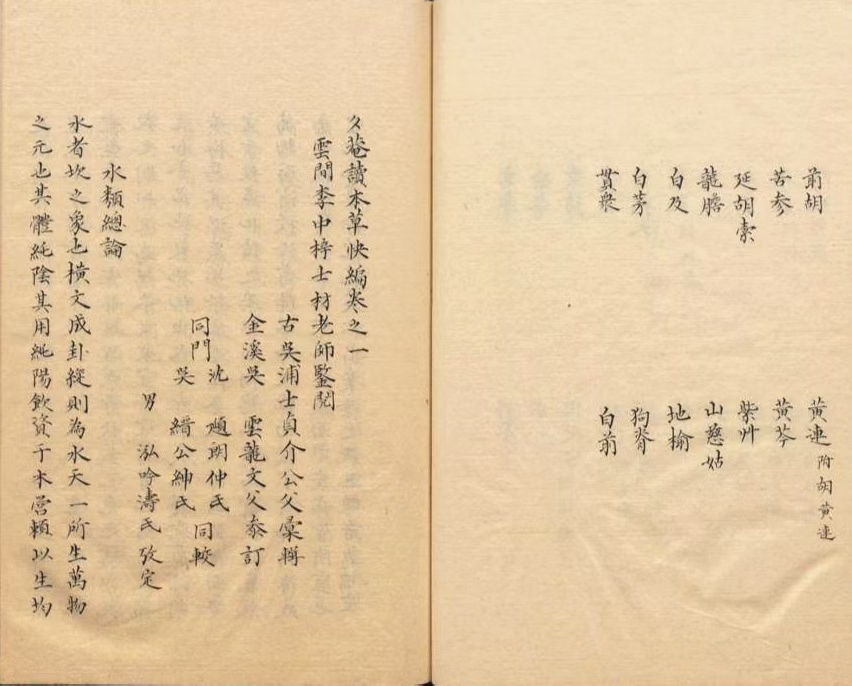 前胡 黃連 附胡黃連
苦参 黃芩
延胡索 紫艸
龍膽 山慈姑
白及 地榆
白茅 狗脊
貫衆 白前
夊菴讀本草快編卷之一
雲間李中梓士材老師鑒閱
古吳浦士貞介公父彙輯
金溪吳雲龍文父叅訂
同門 沈 趙朗仲氏 同較
吳 縉公紳氏
男 泓吟濤氏攷定
水類總論
水者坎之象也橫文成卦縱則為水天一所生萬物
之元也其體純陰其用純陽飲資于木營賴以生均